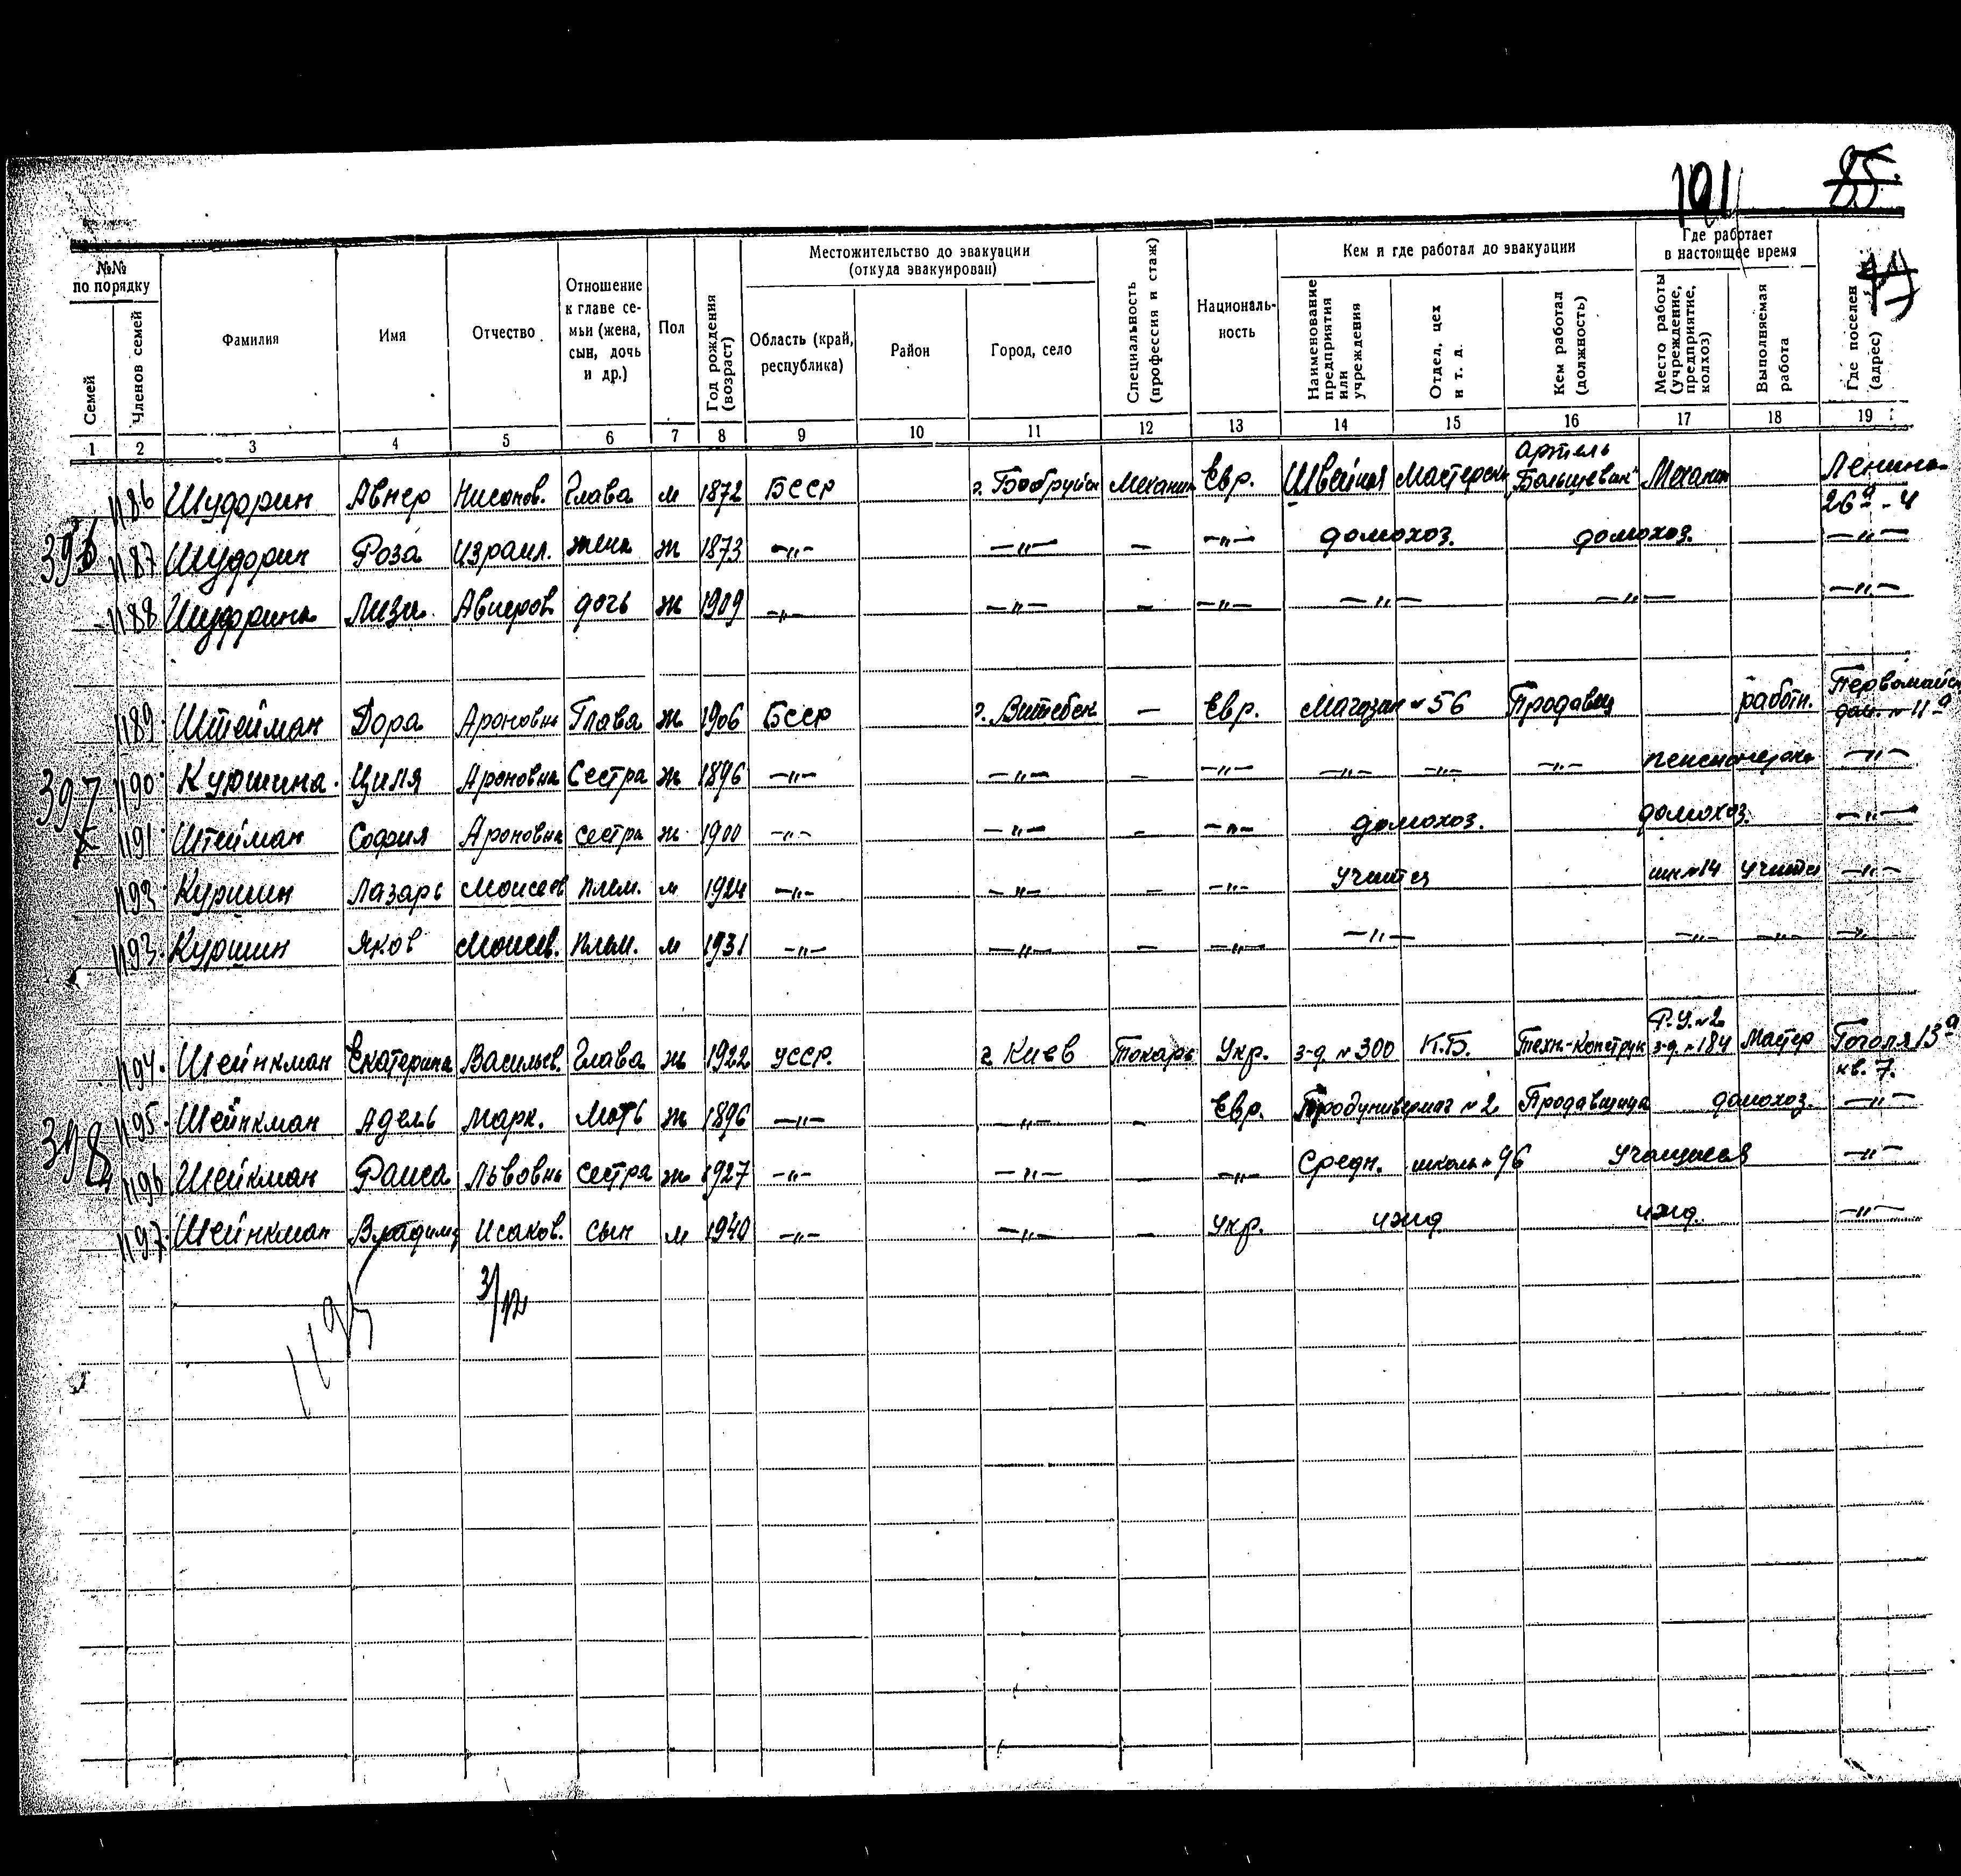 191 85.
№№ по порядку
Семей
Членов семей
Фамилия
Имя
Отчество
Отношение к главе семьи (жена, сын, дочь и др.)
Пол
Год рождения (возраст)
Местожительство до эвакуации (откуда эвакуирован)
Область (край, республика)
Район
Город, село
Специальность (профессия и стаж)
Националь-ность
Кем и где работал до эвакуации
Наименование предприятия или учреждения
Отдел, цех и т. д.
Кем работал (должность)
Где работает в настоящее время
Место работы (учреждение, предприятие, колхоз)
Выполняемая работа
Где поселен (адрес)
1 2 3 4 5 6 7 8 9 10 11 12 13 14 15 16 17 18 19
1186 Шударин Авнер Нисонов. Глава м 1872 БССР г. Бобруйск Механик Евр. Швейная Мастерск. Артель „Большевик" Механик Ленина 26а - 4
396
1187 Шударин Роза Израил. жена ж 1873 —„— —„— — —„— домохоз. домохоз. —„—
1188 Шударина Лиза Авнеров дочь ж 1909 —„— —„— — —„— —„— —„— —„—
1189 Штейман Дора Ароновна Глава ж 1906 БССР г. Витебск — Евр. Магазин №56 Продавец работн. Первомайск дом. №11а
397
1190 Куршина. Циля Ароновна Сестра ж 1896 —„— —„— — —„— —„— —„— —„— пенсионерка —„—
1191 Штейман София Ароновна сестра ж 1900 —„— —„— — —„— домохоз. домохоз. —„—
1193 Куршин Лазарь Моисеев плем. м 1924 —„— —„— — —„— учится шк №14 учится —„—
1193. Куршин Яков Моисев. плем. м 1931 —„— —„— — —„— —„— —„— —„— —„—
1194. Шейнкман Екатерина Васильев. Глава ж 1922 УССР. г. Киев Токарь Укр. з-д №300 К.Б. Техн.-Конструк Р.У. №2 з-д. №184 Мастер Гоголя 13а кв. 7.
398
1195. Шейнкман Адель Марк. Мать ж 1896 —„— —„— — Евр. Продунивермаг №2 Продавщица домохоз. —„—
1196 Шейкман Раиса Львовна сестра ж 1927 —„— —„— — —„— Средн. школа №96 учащаяся —„—
1197. Шейнкман Владимир Исаков. сын м 1940 —„— —„— — Укр. ижд. ижд. —„—
3/12